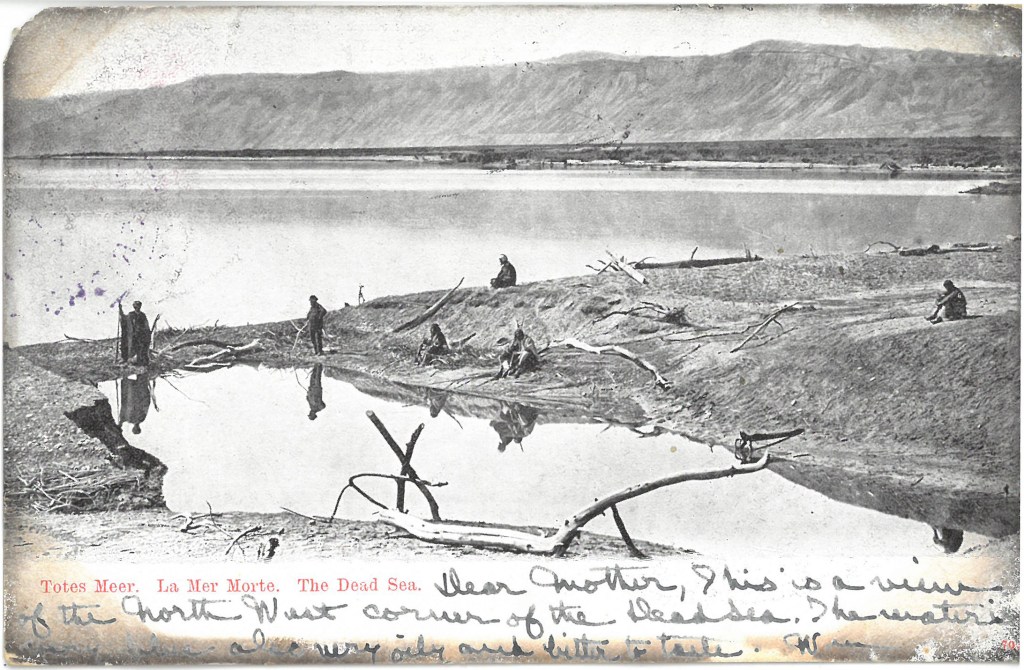 Totes Meer. La Mer Morte. The Dead Sea. Dear Mother, This is a view
of the North West corner of the Dead Sea. The water is
very also very oily and bitter to taste.